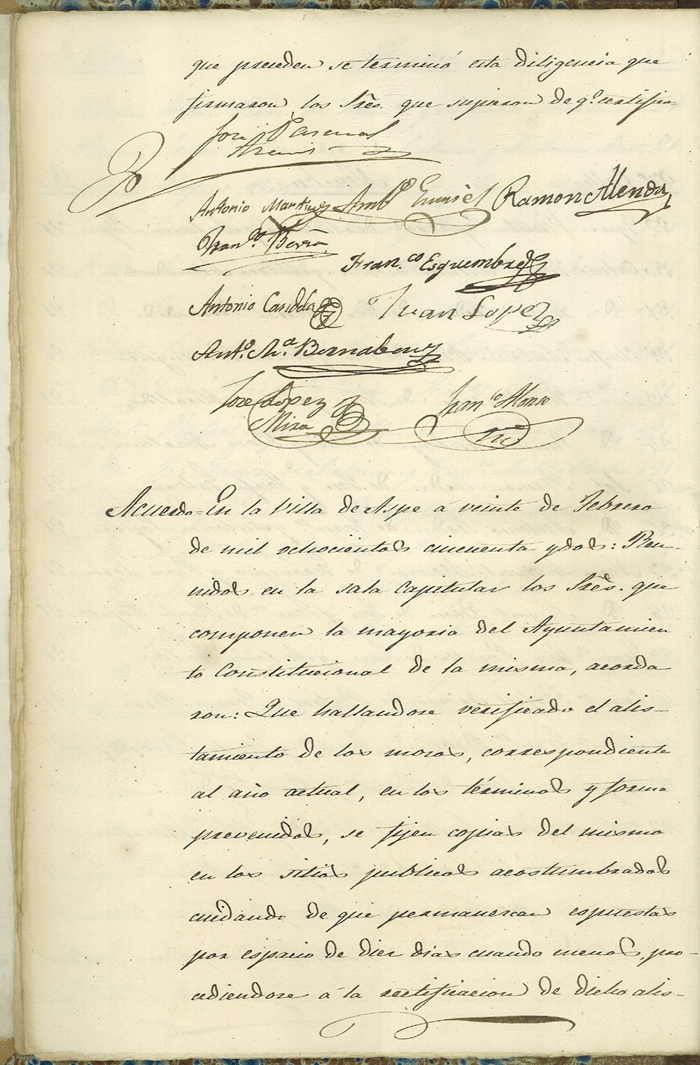 que preceden se terminó esta diligencia que
firmaron los Sres. que supieron de q.e certifico
José Pascual
Antonio Martinez Amb.o Ramon Alenda
Fran.co
Fran.co Esquembre
Antonio Juan Lopez
Ant.o M.a Bernabeu
Jose Lopez Fran.co Alonso
Mira
Acuerdo = En la Villa de Aspe á veinte de Febrero
de mil ochocientos cincuenta y dos: Reu-
nidos en la sala capitular los Sres. que
componen la mayoria del Ayuntamien
to Constitucional de la misma, acorda
ron: Que hallandose verificado el alis-
tamiento de los mozos, correspondiente
al año actual, en los términos y forma
prevenidos, se fijen copias del mismo
en los sitios publicos acostumbrados
cuidando de que permanezcan espuestas
por espacio de diez dias cuando menos, pro-
cediendose á la rectificacion de dicho alis-